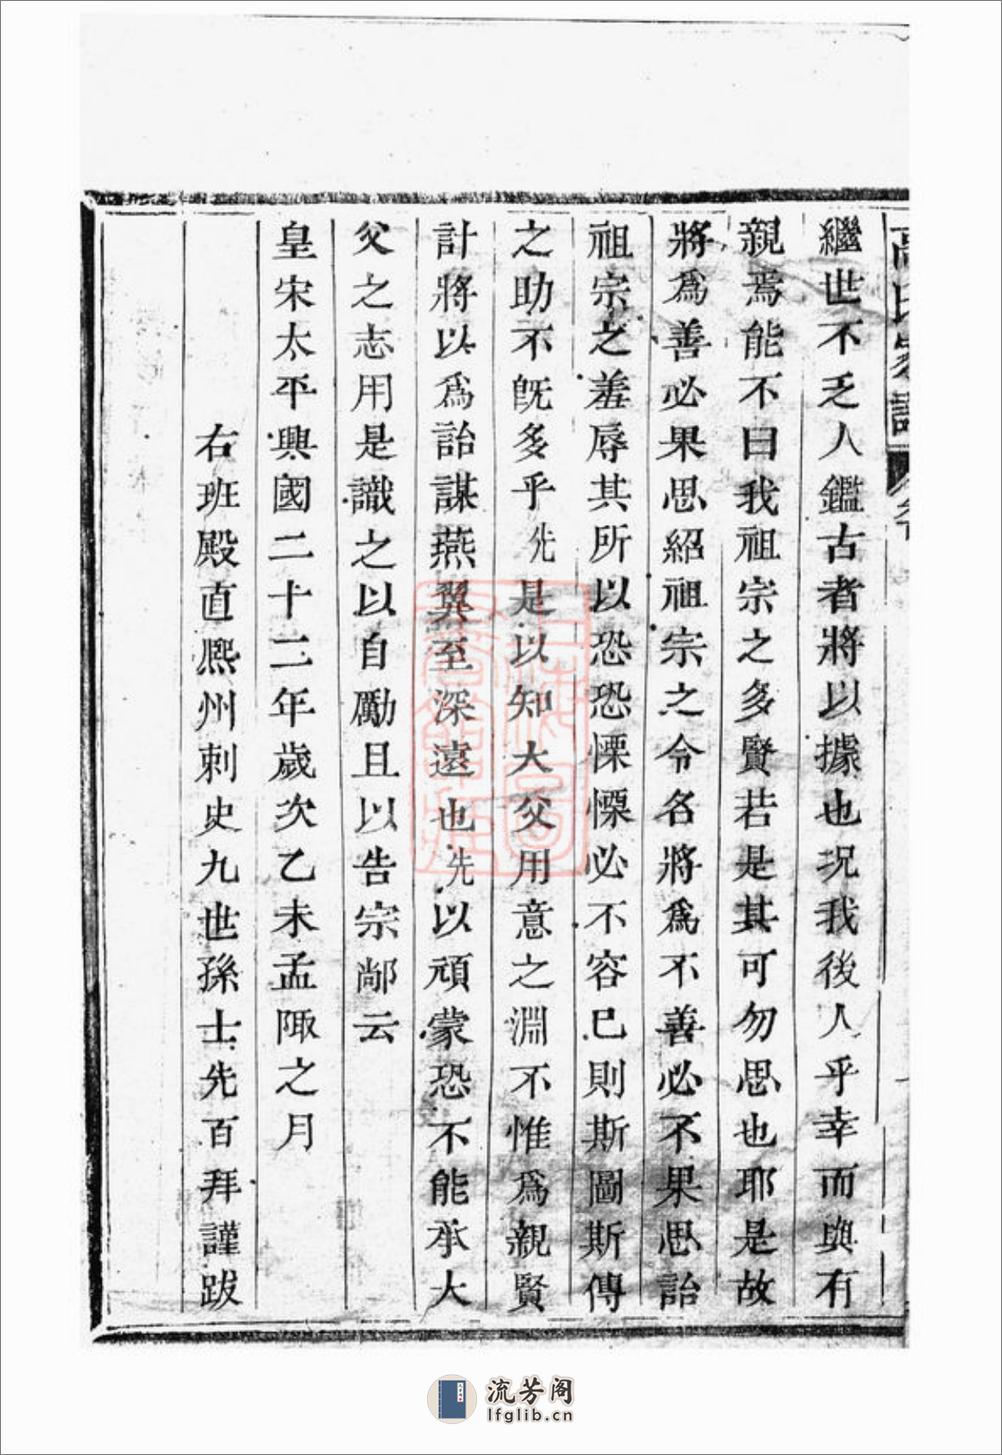 高氏家譜
繼世不乏人鑑古者將以據也況我後人乎幸而與有
親焉能不曰我祖宗之多賢若是其可勿思也耶是故
將爲善必果思紹祖宗之令名將爲不善必不果思詒
祖宗之羞辱其所以恐恐慄慄必不容已則斯圖斯傳
之助不旣多乎先是以知大父用意之淵不惟爲親賢
計將以爲詒謀燕翼至深遠也先以頑蒙恐不能承大
父之志用是識之以自勵且以告宗鄗云
皇宋太平興國二十二年歲次乙未孟陬之月
右班殿直熈州刺史九世孫士先百拜謹跋
流芳阁
lfglib.cn